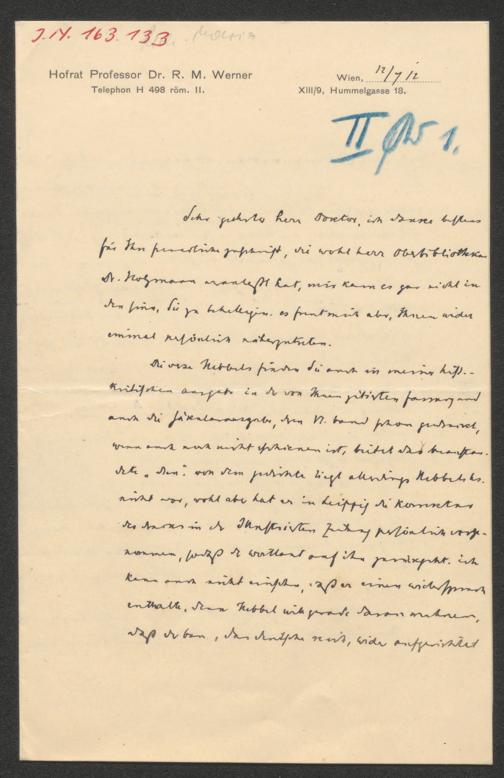 J.N. 163.133
Hofrat Professor Dr. R. M. Werner
Telephon H 498 röm. II.
Wien, 12/7 12
XIII/9, Hummelgasse 18.
II 1.
Sehr geehrter Herr Doctor, ich danke bestens
für Ihre freundliche Zuschrift, die wohl Herr Oberbibliothekar
Dr. Holzmann veranlaßt hat, mir kam es gar nicht in
den Sinn, Sie zu behelligen. es freut mich aber, Ihnen wieder
einmal persönlich näherzutreten.
Die Verse Hebbels finden Sie auch in meiner hist.-
kritischen Ausgabe in der von Ihnen zitierten Fassung und
auch die Säkularausgabe, deren VI. Band schon gedruckt,
wenn auch noch nicht erschienen ist, bietet das beanstan-
dete „den". von dem Gedichte liegt allerdings Hebbels Hs.
nicht vor, wohl aber hat er in Leipzig die Korrektur
des Drucks in der Illustrierten Zeitung persönlich vorge-
nommen, sodaß der Wortlaut auf ihn zurückgeht. ich
kann auch nicht einsehen, daß er einen Widerspruch
enthalte, denn Hebbel will gerade davor warnen,
daß der Bau, das deutsche Reich, wieder aufgerichtet